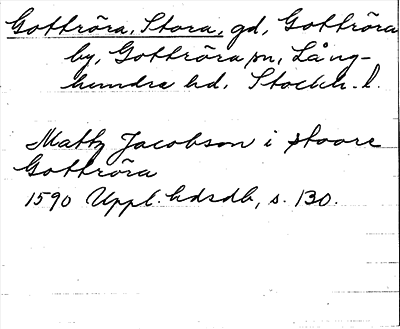 Gottröra, Stora, gd, Gottröra
by, Gottröra sn, Lång-
hundra hd. Stockh. l.
Matz Jacobson i stoore
Gottröra
1590 Uppl. hdsdb, s. 130.